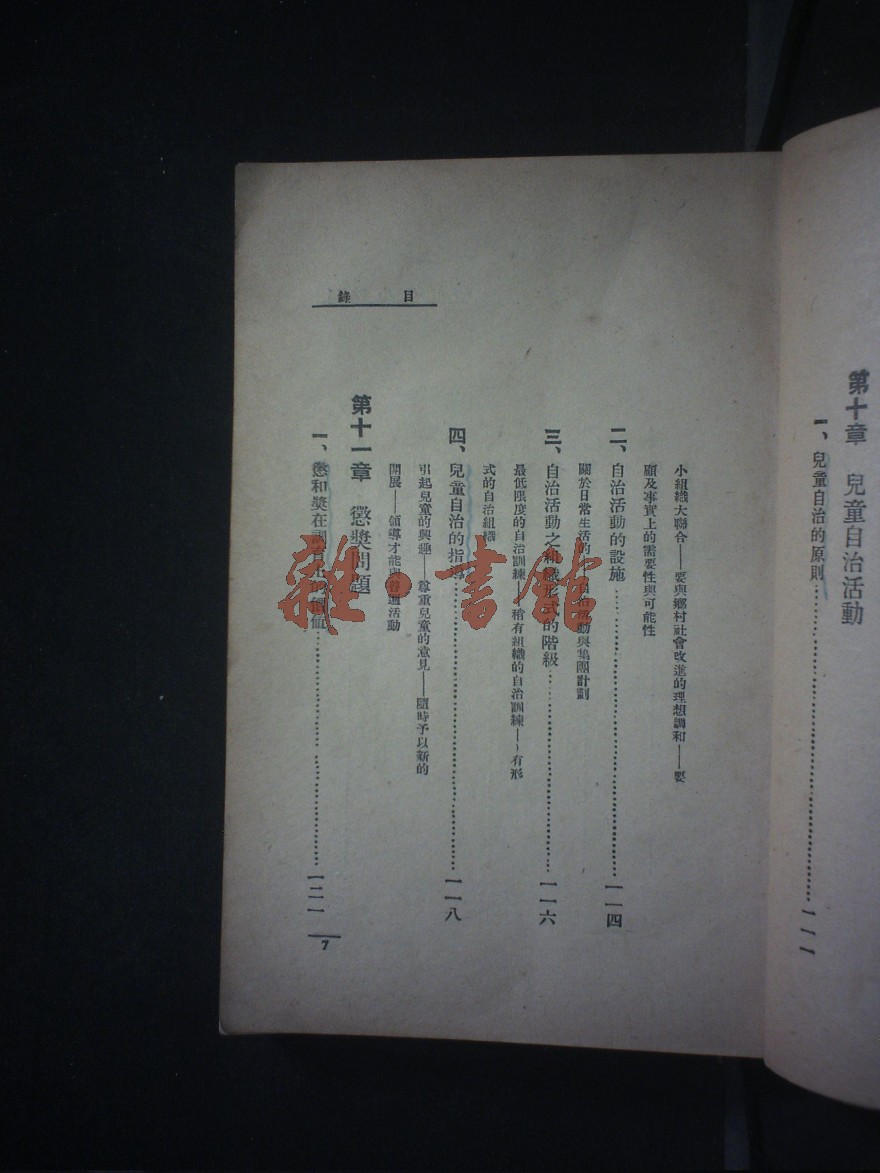 第十章 兒童自治活動
一、兒童自治的原則……一一一
目錄
小組織大聯合——要與鄉村社會改進的理想調和——要
顧及事實上的需要性與可能性
二、自治活動的設施……一一四
關於日常生活的自治活動與集團計劃
三、自治活動之組織形式的階級……一一六
最低限度的自治訓練——稍有組織的自治訓練——有形
式的自治組織
四、兒童自治的指導……一一八
引起兒童的興趣——尊重兒童的意見——隨時予以新的
開展——領導才能與普通活動
第十一章 懲獎問題
一、懲和獎在訓育上的價值……一二一
7
雜·書館